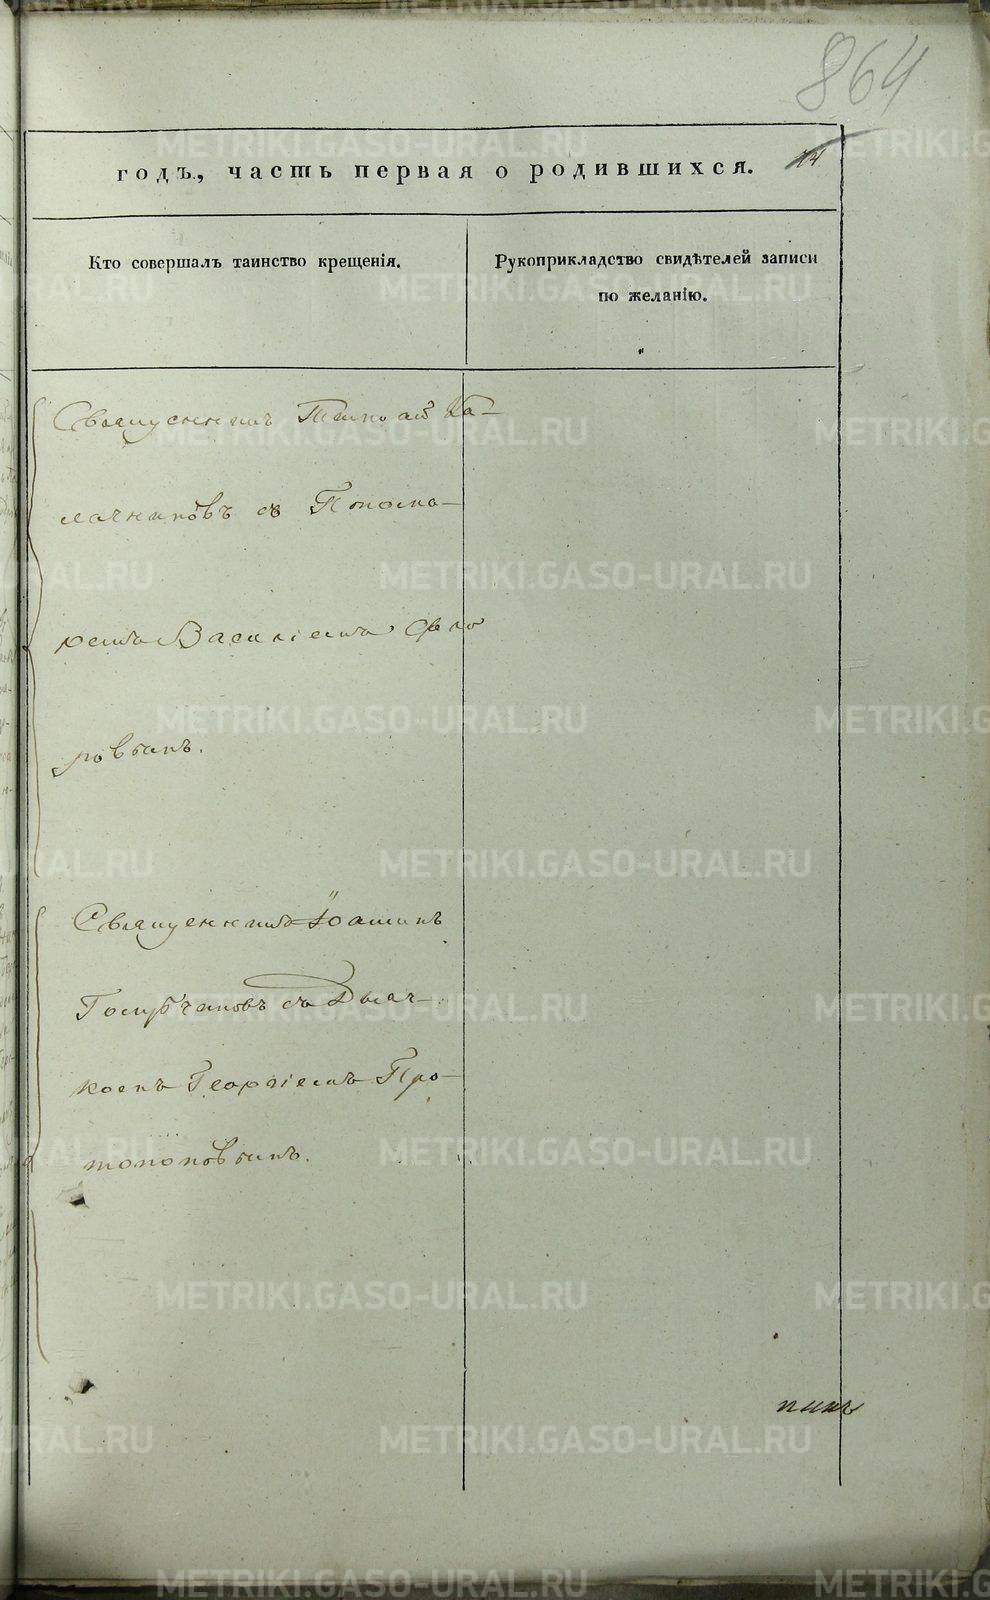 864
годъ, часть первая о родившихся.
14
Кто совершалъ таинство крещенія.
Рукоприкладство свидѣтелей записи
по желанію.
Священникъ Ка-
лачниковъ съ Поном-
Василіемъ Фло
ровымъ.
Священникъ Іоаннъ
Голубчиковъ съ Дьяч-
комъ Георгіемъ Про-
топоповымъ.
METRIKI.GASO-URAL.RU